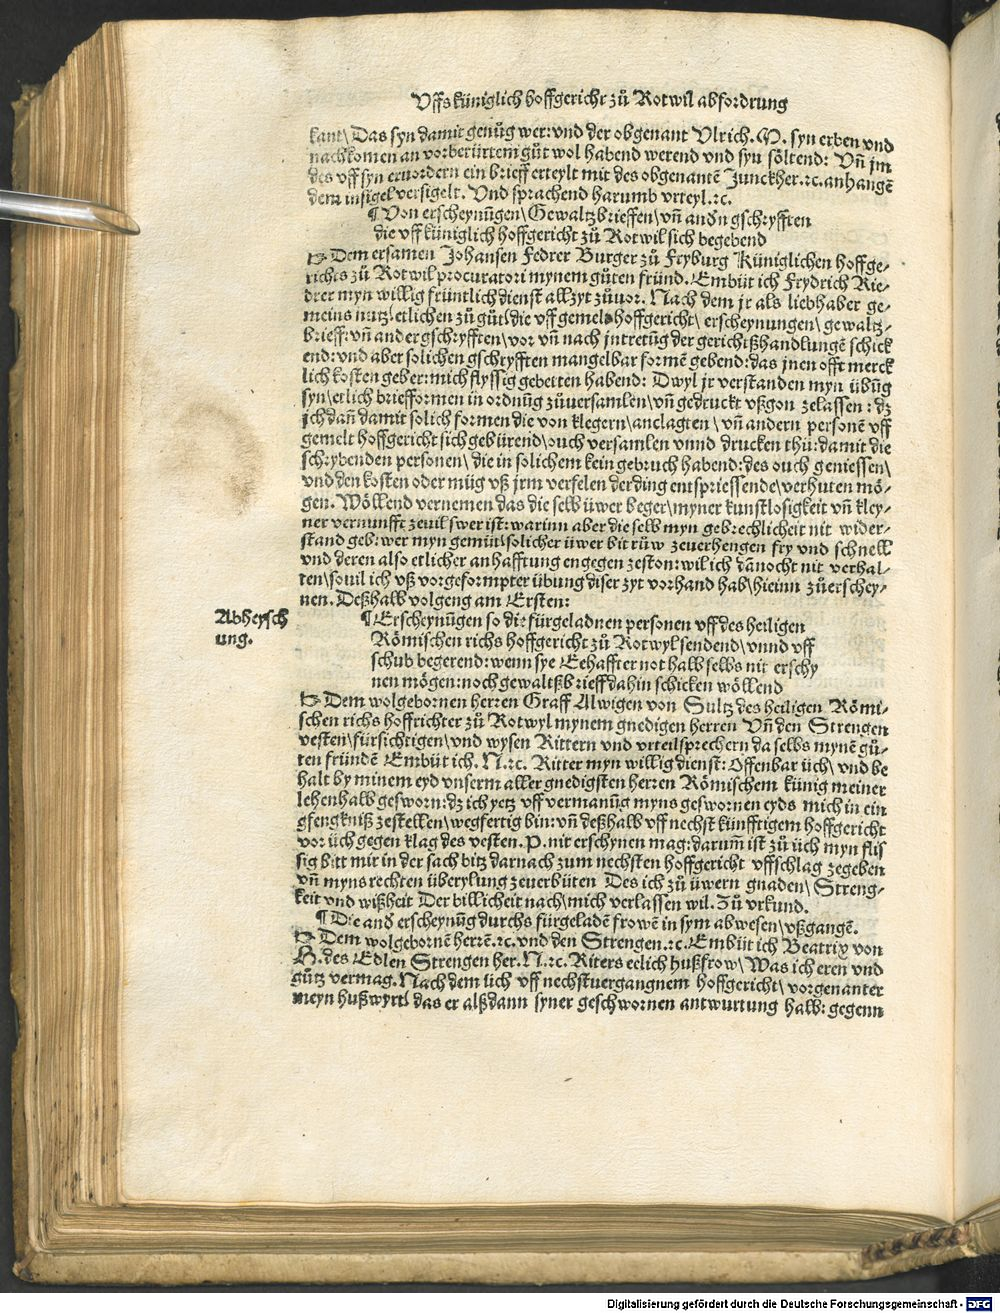 Vffs küniglich hoffgericht zů Rotwil abfordrung
kant\ Das syn damit genůg wer: vnd der obgenant Vlrich. M. syn erben vnd
nachkomen an vorberürtem gůt wol habend werend vnd syn söltend: Vñ jm
des vff syn eruordern ein brieff erteylt mit des obgenantē Junckher. ꝛc. anhangē
dem insigel versigelt. Vnd sprachend harumb vrteyl. ꝛc.
¶ Von erscheynũgen\ Gewaltzbrieffen\ vñ andn gschryfften
die vff küniglich hoffgericht zů Rotwil sich begebend
Dem ersamen Johansen Fedrer Burger zů Fryburg Küniglichen hoffge-
richts zů Rotwil procuratori mynem gůten fründ. Embüt ich Frydrich Rie-
drer myn willig früntlich dienst allzyt zůuor. Nach dem jr als liebhaber ge-
meins nutz\ etlichen zů gůt\ die vff gemelt hoffgericht\ erscheynungen\ gewaltz-
brieff: vñ ander gschryfften\ vor vñ nach jntretũg der gerichtßhandlungē schick
end: vnd aber solichen gschryfften mangelbar formē gebend: das jnen offt merck
lich kosten geber: mich flyssig gebetten habend: Dwyl jr verstanden myn übũg
syn\ etlich briefformen in ordnũg zůuersamlen\ vñ gedruckt vßgon zelassen: dz
ich dañ damit solich formen die von klegern\ anclagten\ vñ andern personē vff
gemelt hoffgericht sich gebürend\ ouch versamlen vnnd drucken thü: damit die
schrybenden personen\ die in solichem kein gebruch habend: des ouch geniessen\
vnd den kosten oder müg vß jrm verfelen der ding entspriessende\ verhuten mö-
gen. Wöllend vernemen das die selb üwer beger\ myner kunstlosigkeit vñ kley-
ner vernunfft zeuil swer ist: warinn aber die selb myn gebrechlicheit nit wider-
stand geb: wer myn gemüt\ solicher üwer bit rüw zeuerhengen fry vnd schnell
vnd deren also etlicher anhafftung engegen zeston: wil ich dānocht nit verhal-
ten\ souil ich vß vorgeformpter übung diser zyt vorhand hab\ hieinn zůerschey-
nen. Deßhalb volgeng am Ersten:
Abheysch
ung.
¶ Erscheynũgen so die fürgeladnen personen vff des heiligen
Römischen richs hoffgericht zů Rotwyl sendend\ vnnd vff
schub begerend: wenn sye Eehaffter not halb selbs nit erschy
nen mögen: noch gewaltßbrieff dahin schicken wöllend
Dem wolgebornen herren Graff Alwigen von Sultz des heiligen Römi-
schen richs hoffrichter zů Rotwyl mynem gnedigen herren Vñ den Strengen
vesten\ fürsichtigen\ vnd wysen Rittern vnd vrteilsprechern da selbs mynē gů-
ten fründē Embüt ich. N. ꝛc. Ritter myn willig dienst: Offenbar üch\ vnd be
halt by minem eyd vnserm aller gnedigsten herren Römischem künig meiner
lehenhalb gesworn: dz ich yetz vff vermanũg myns geswornen eyds mich in ein
gfengkniß zestellen\ wegfertig bin: vñ deßhalb vff nechst künfftigem hoffgericht
vor üch gegen klag des vesten. P. nit erschynen mag: darum̃ ist zů üch myn flis
sig bitt mir in der sach bitz darnach zum nechsten hoffgericht vffschlag zegeben
vñ myns rechten überylung zeuerbüten Des ich zů üwern gnaden\ Streng-
keit vnd wißheit Der billicheit nach\ mich verlassen wil. Zů vrkund.
¶ Die and erscheynũg durchs fürgeladē frowē in sym abwesen\ vßgangē.
Dem wolgebornē herrē. ꝛc. vnd den Strengen. ꝛc. Embüt ich Beatrix von
H. des Edlen Strengen her. N. ꝛc. Riters eelich hußfrow\ Was ich eren vnd
gůtz vermag. Nach dem sich vff nechstuergangnem hoffgericht\ vorgenanter
meyn hußwyrt\ das er alßdann syner geschwornen antwurtung halb: gegenn
Digitalisierung gefördert durch die Deutsche Forschungsgemeinschaft - DFG